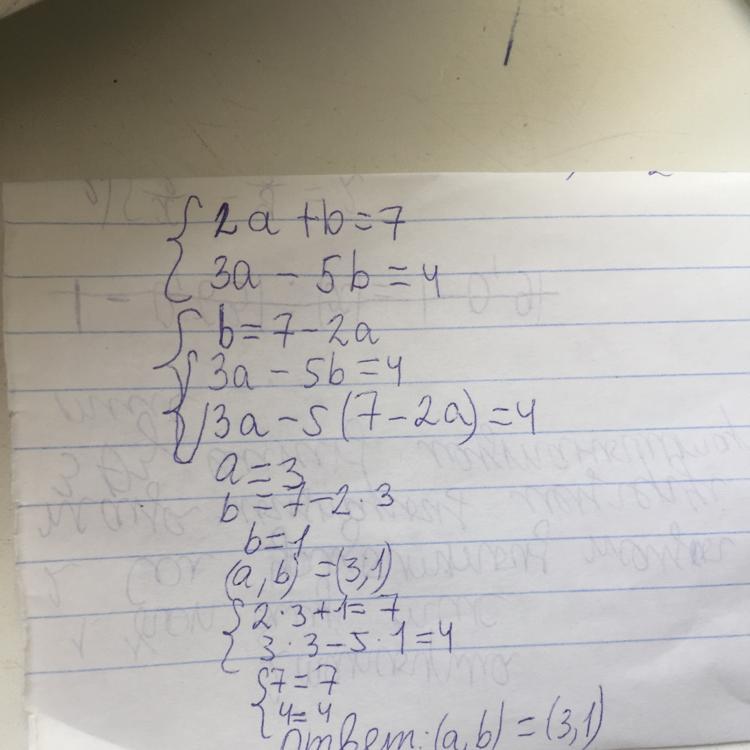 2a + b = 7
3a - 5b = 4
b = 7 - 2a
3a - 5b = 4
3a - 5(7 - 2a) = 4
a = 3
b = 7 - 2 · 3
b = 1
(a, b) = (3; 1)
2 · 3 + 1 = 7
3 · 3 - 5 · 1 = 4
7 = 7
4 = 4
Ответ: (a, b) = (3, 1)